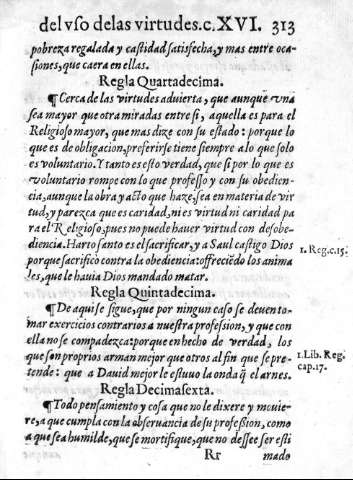 del vso delas virtudes.c.XVI. 313
pobreza regalada y castidad satisfecha, y mas entre oca-
siones, que caera en ellas.
Regla Quartadecima.
¶ Cerca de las virtudes aduierta, que aunque vna
sea mayor que otra miradas entre si, aquella es para el
Religioso mayor, que mas dize con su estado: porque lo
que es de obligacion, preferirse tiene siempre a lo que solo
es voluntario. Y tanto es esto verdad, que si por lo que es
voluntario rompe con lo que professo y con su obedien-
cia, aunque la obra y acto que haze, sea en materia de vir
tud, y parezca que es caridad, ni es virtud ni caridad pa
ra el Religioso, pues no puede hauer virtud con desobe-
diencia. Harto santo es el sacrificar, y a Saul castigo Dios
porque sacrifico contra la obediencia: offreciẽdo los anima
les, que le hauia Dios mandado matar.
1. Reg.c.15.
Regla Quintadecima.
¶ De aqui se sigue, que por ningun caso se deuen to-
mar exercicios contrarios a nuestra profession, y que con
ella no se compadezcã: porque en hecho de verdad, los
que son proprios arman mejor que otros al fin que se pre-
tende: que a Dauid mejor le estuuo la onda q̃ el arnes.
1. Lib. Reg.
cap.17.
Regla Decimasexta.
¶ Todo pensamiento y cosa que no le dixere y mouie-
re, a que cumpla con la obseruancia de su profession, como
a que sea humilde, que se mortifique, que no dessee ser esti
Rr mado